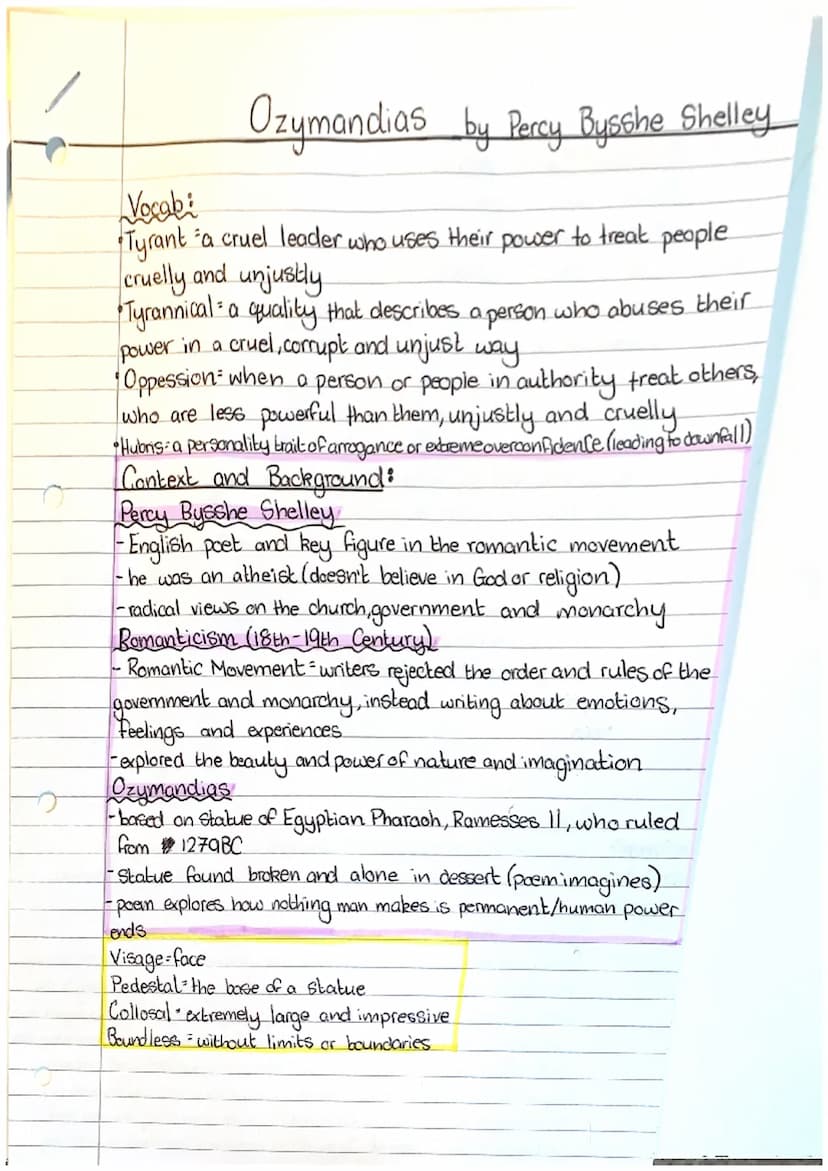 Ozymandias by Percy Bysshe Shelley
Vocab:
•Tyrant = a cruel leader who uses their power to treat people
cruelly and unjustly
•Tyrannical = a quality that describes a person who abuses their
power in a cruel, corrupt and unjust way
•Oppession = when a person or people in authority treat others,
who are less powerful than them, unjustly and cruelly
•Hubris = a personality trait of arrogance or extreme overconfidence (leading to downfall)
Context and Background:
Percy Bysshe Shelley
- English poet and key figure in the romantic movement
- he was an atheist (doesn't believe in God or religion)
- radical views on the church, government and monarchy
Romanticism (18th-19th Century)
- Romantic Movement = writers rejected the order and rules of the
government and monarchy, instead writing about emotions,
feelings and experiences
- explored the beauty and power of nature and imagination
Ozymandias
- based on statue of Egyptian Pharaoh, Ramesses II, who ruled
from 1279BC
- Statue found broken and alone in dessert (poem imagines)
- poem explores how nothing man makes is permanent/human power
ends
Visage = face
Pedestal = the base of a statue
Collosal = extremely large and impressive
Boundless = without limits or boundaries